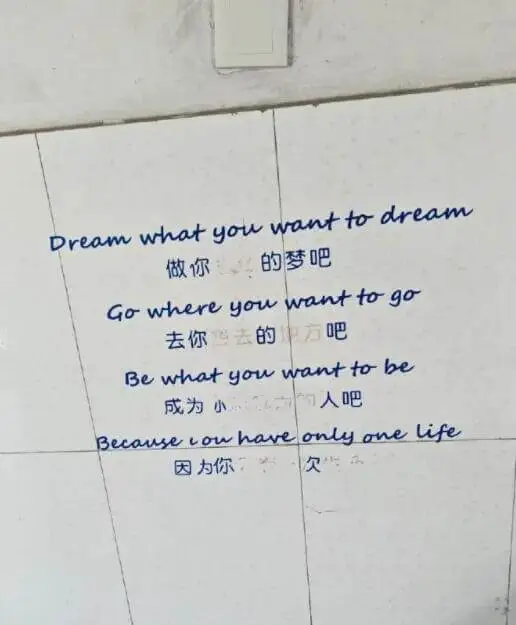 Dream what you want to dream
做你 的梦吧
Go where you want to go
去你想去的地方吧
Be what you want to be
成为 人吧
Because you have only one life
因为你